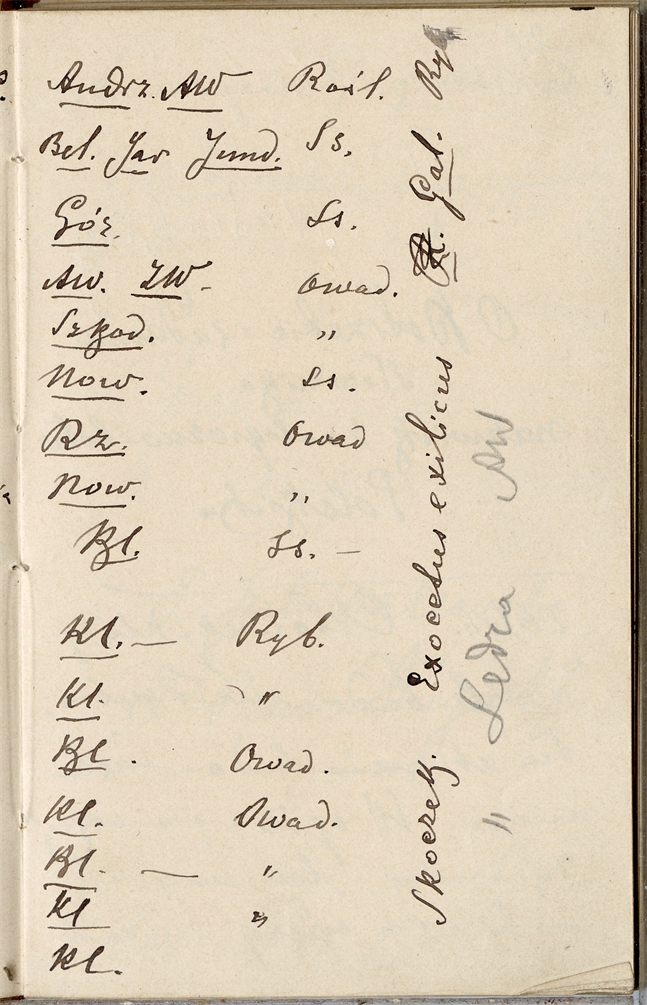 Andrz. AW Rośl.
Bel. Jav Jund. Ss.
Górz. Ss.
AW. ZW - Owad.
Szkod. "
Now. Ss.
Rz. Owad
Now. "
Bl. Ss. –
Kl. — Ryb.
Kl "
Bl. Owad.
Kl. Owad.
Bl. — "
Kl "
Kl.
Skoczek. Exocetus exilicus Gal. Ryb
" Ledra AW